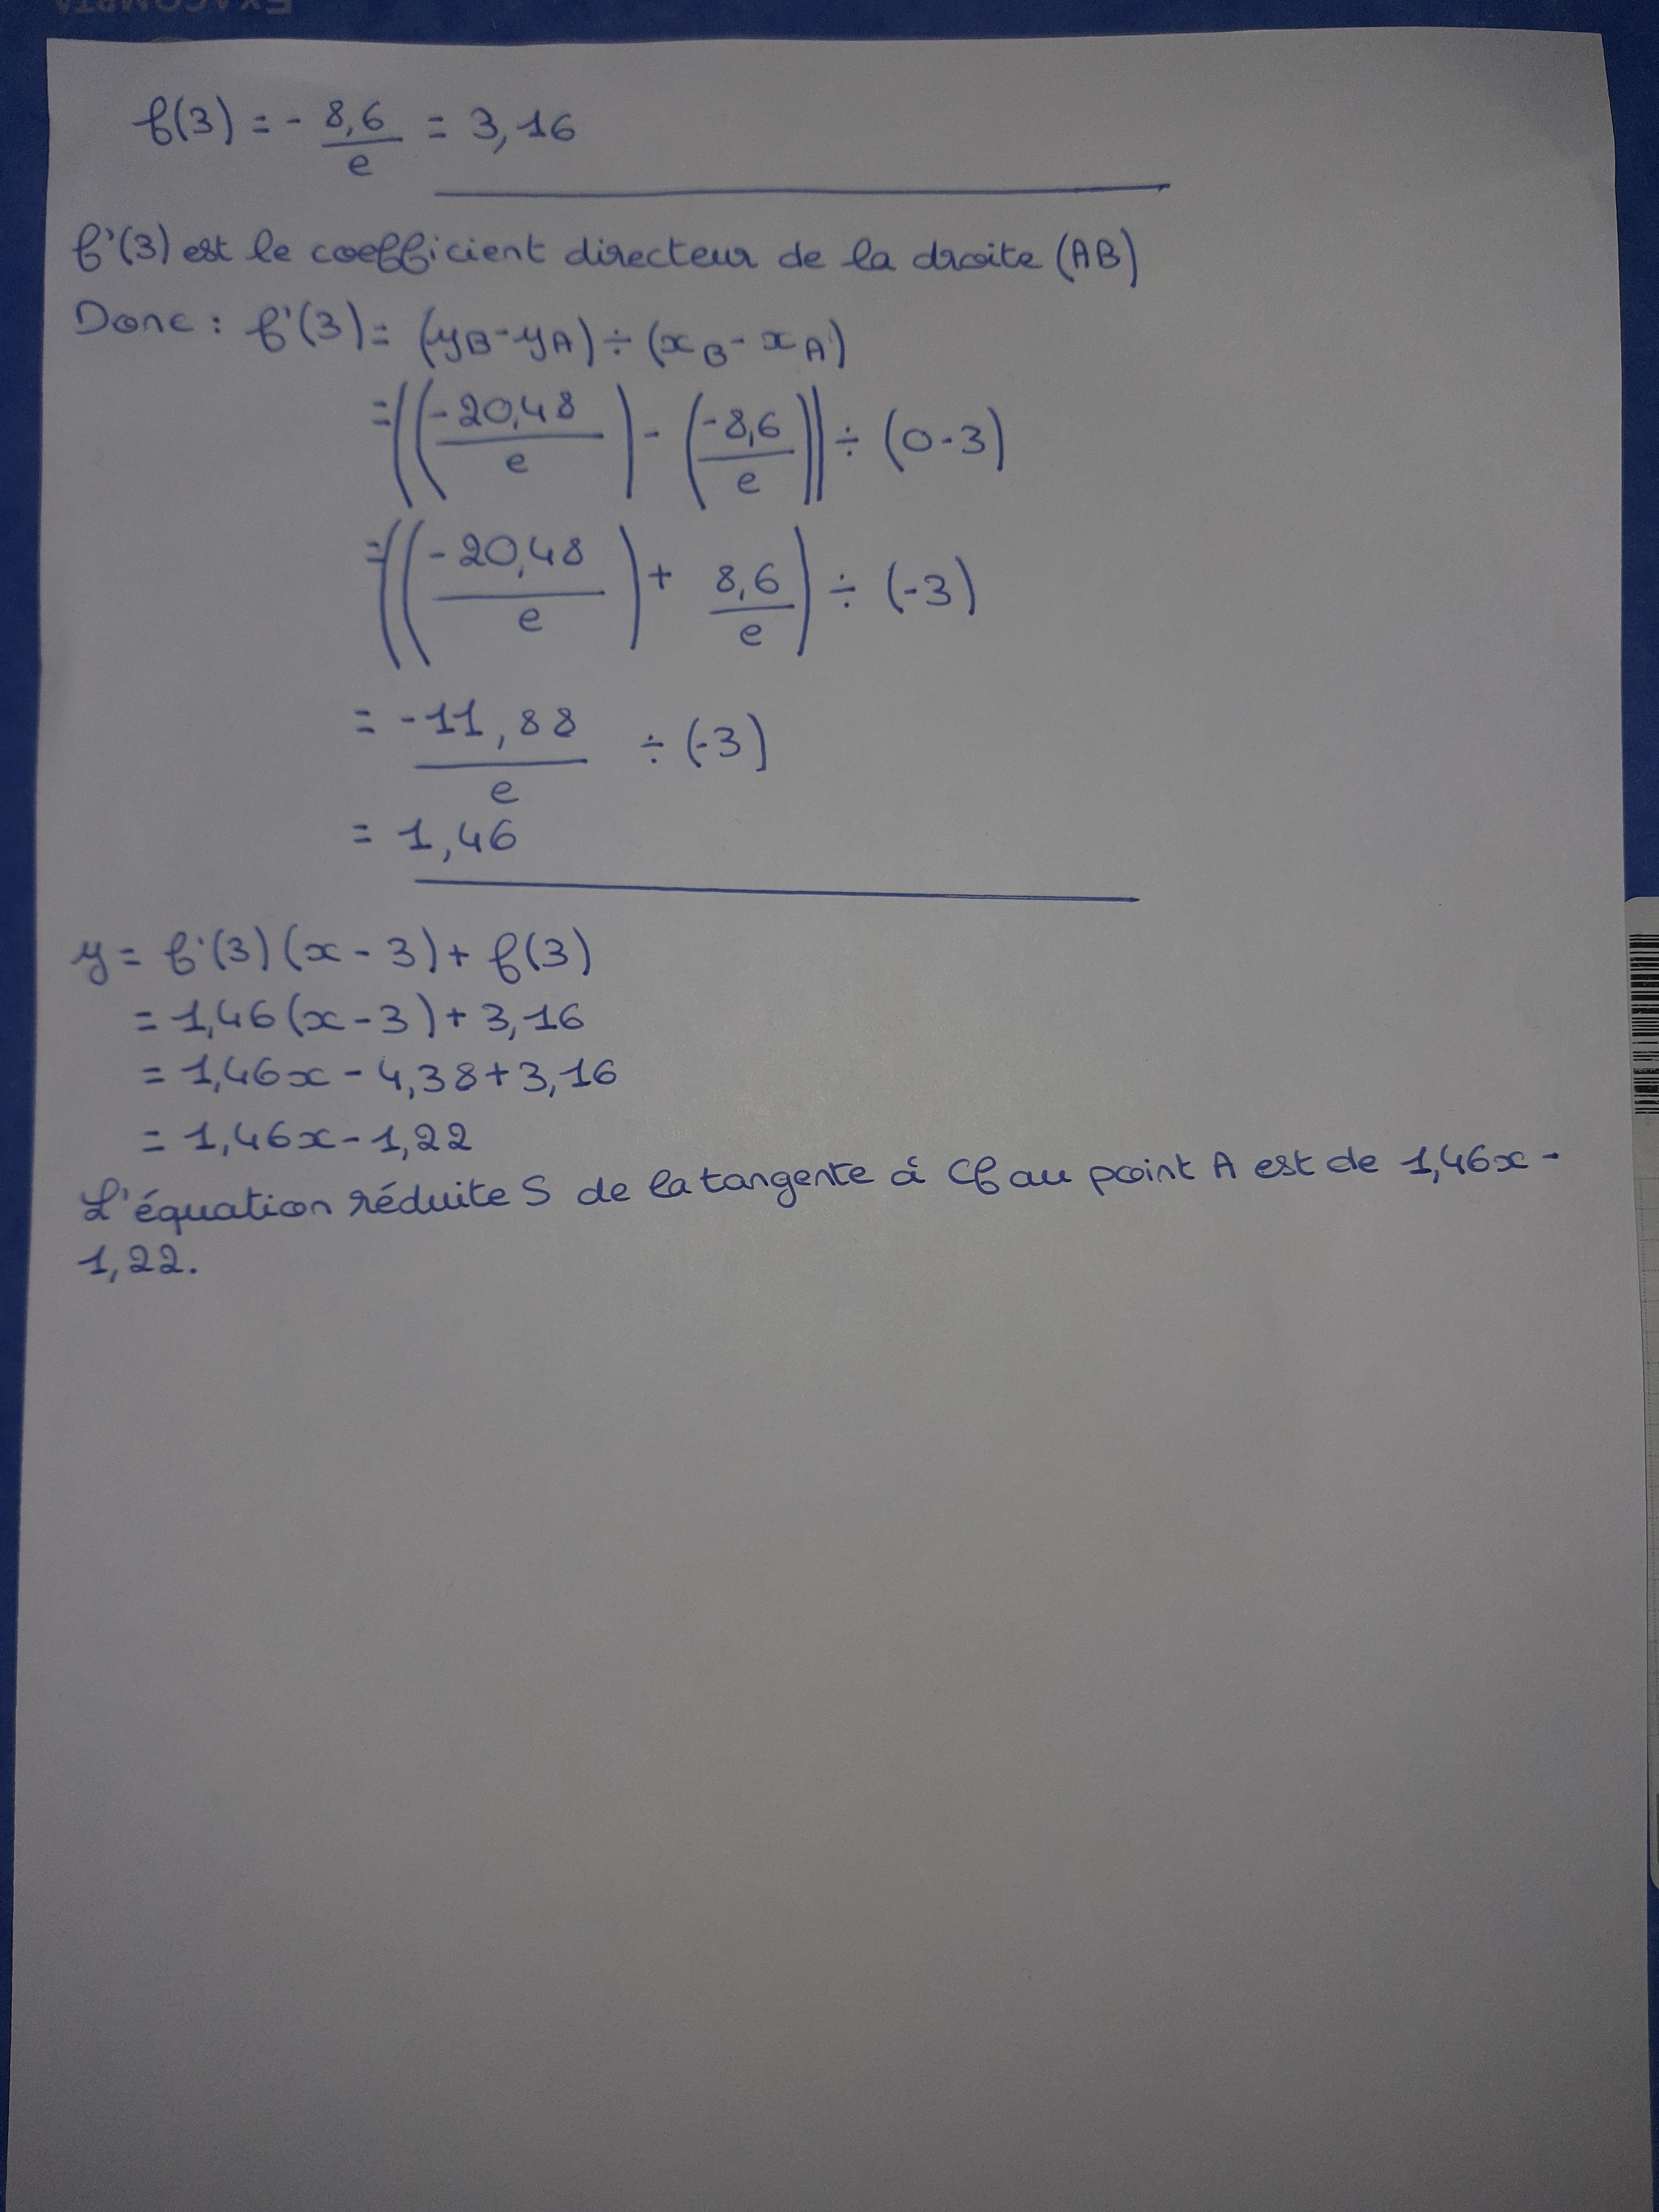 EXACOMPTA
f(3) = - 8,6/e = 3,16
f'(3) est le coefficient directeur de la droite (AB)
Donc : f'(3) = (yB - yA) ÷ (xB - xA)
= ((-20,48/e) - (-8,6/e)) ÷ (0-3)
= ((-20,48/e) + 8,6/e) ÷ (-3)
= -11,88/e ÷ (-3)
= 1,46
y = f'(3) (x - 3) + f(3)
= 1,46 (x - 3) + 3,16
= 1,46x - 4,38 + 3,16
= 1,46x - 1,22
L'équation réduite S de la tangente à Cf au point A est de 1,46x -
1,22.